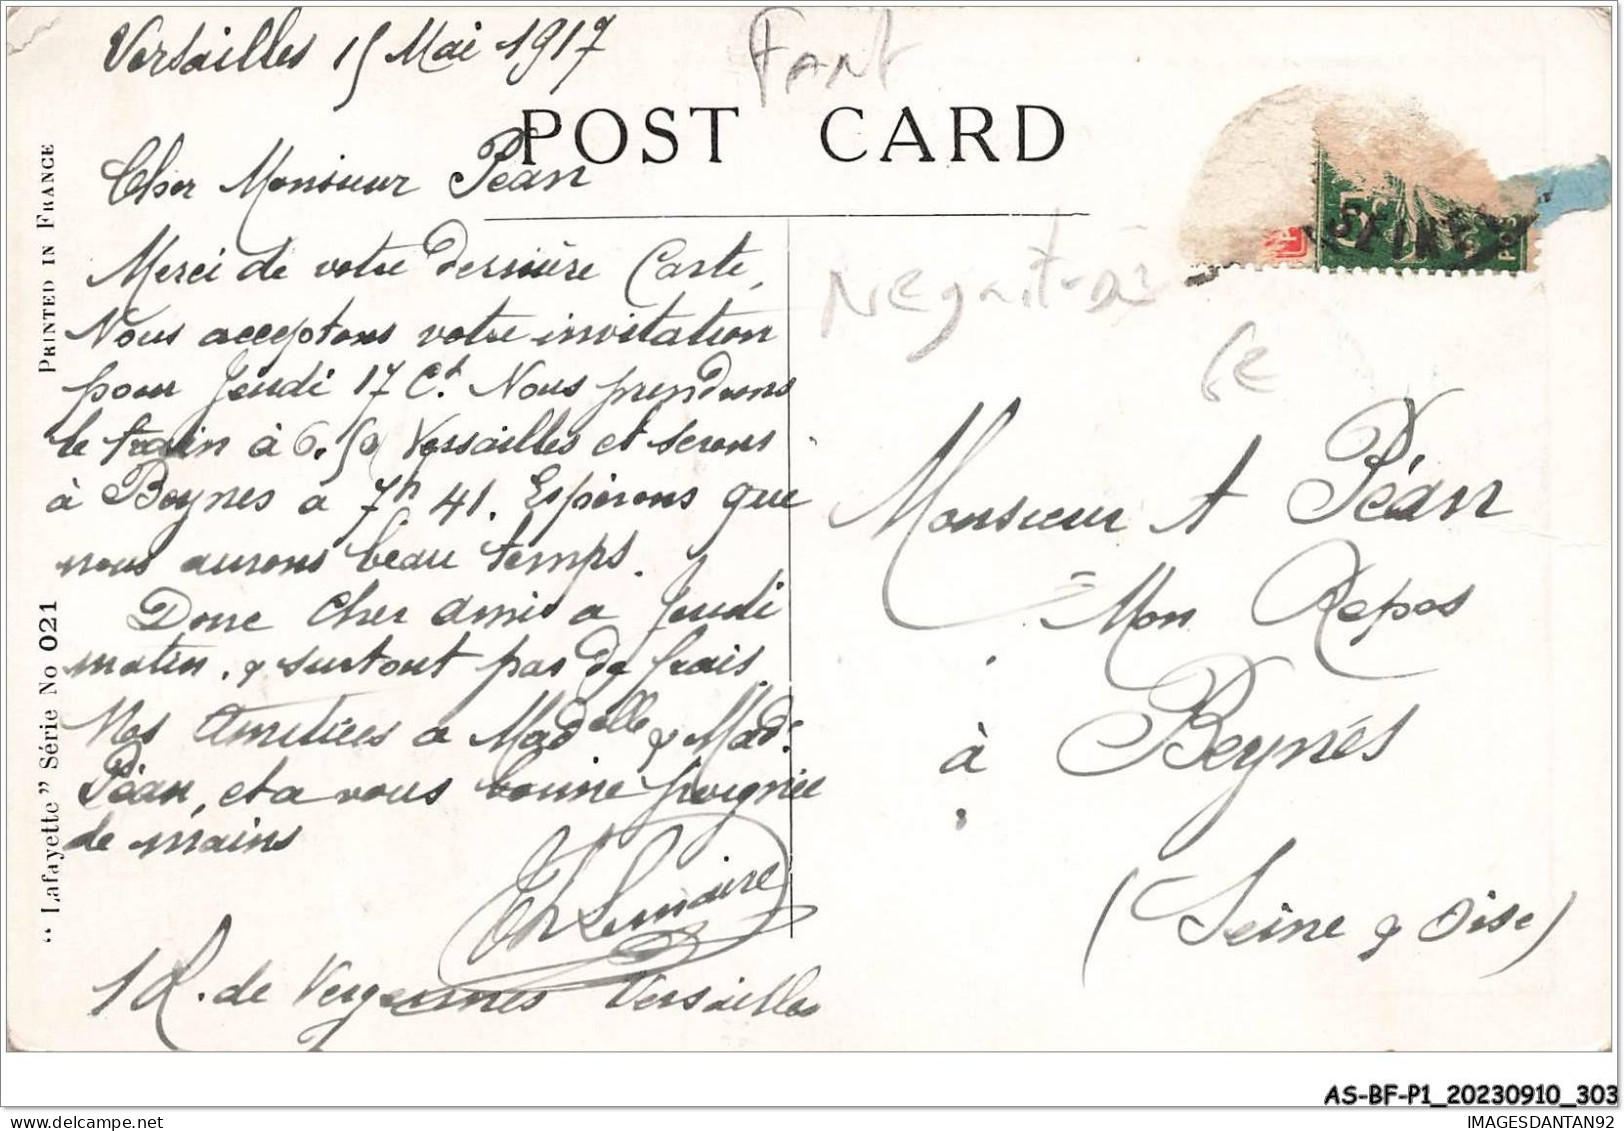 Versailles 15 Mai 1917
Fant
POST CARD
Cher Monsieur Péan
Merci de votre dernière Carte,
Nous acceptons votre invitation
pour Jeudi 17 Ct. Nous prendrons
le train à 6.50 Versailles et serons
à Beynes a 7h 41. Espérons que
nous aurons beau temps.
Donc Cher ami a Jeudi
matin, & surtout pas de frais.
Nos Amitiées a Madelle & Made
Péan, et a vous bonne poignée
de mains
Th Lemaire
1 R. de Vergennes Versailles
PRINTED IN FRANCE
“Lafayette” Série No 021
SEINE
6E
Monsieur A Péan
Mon Repos
à Beynes
(Seine & Oise)
AS-BF-P1_20230910_303
IMAGESDANTAN92